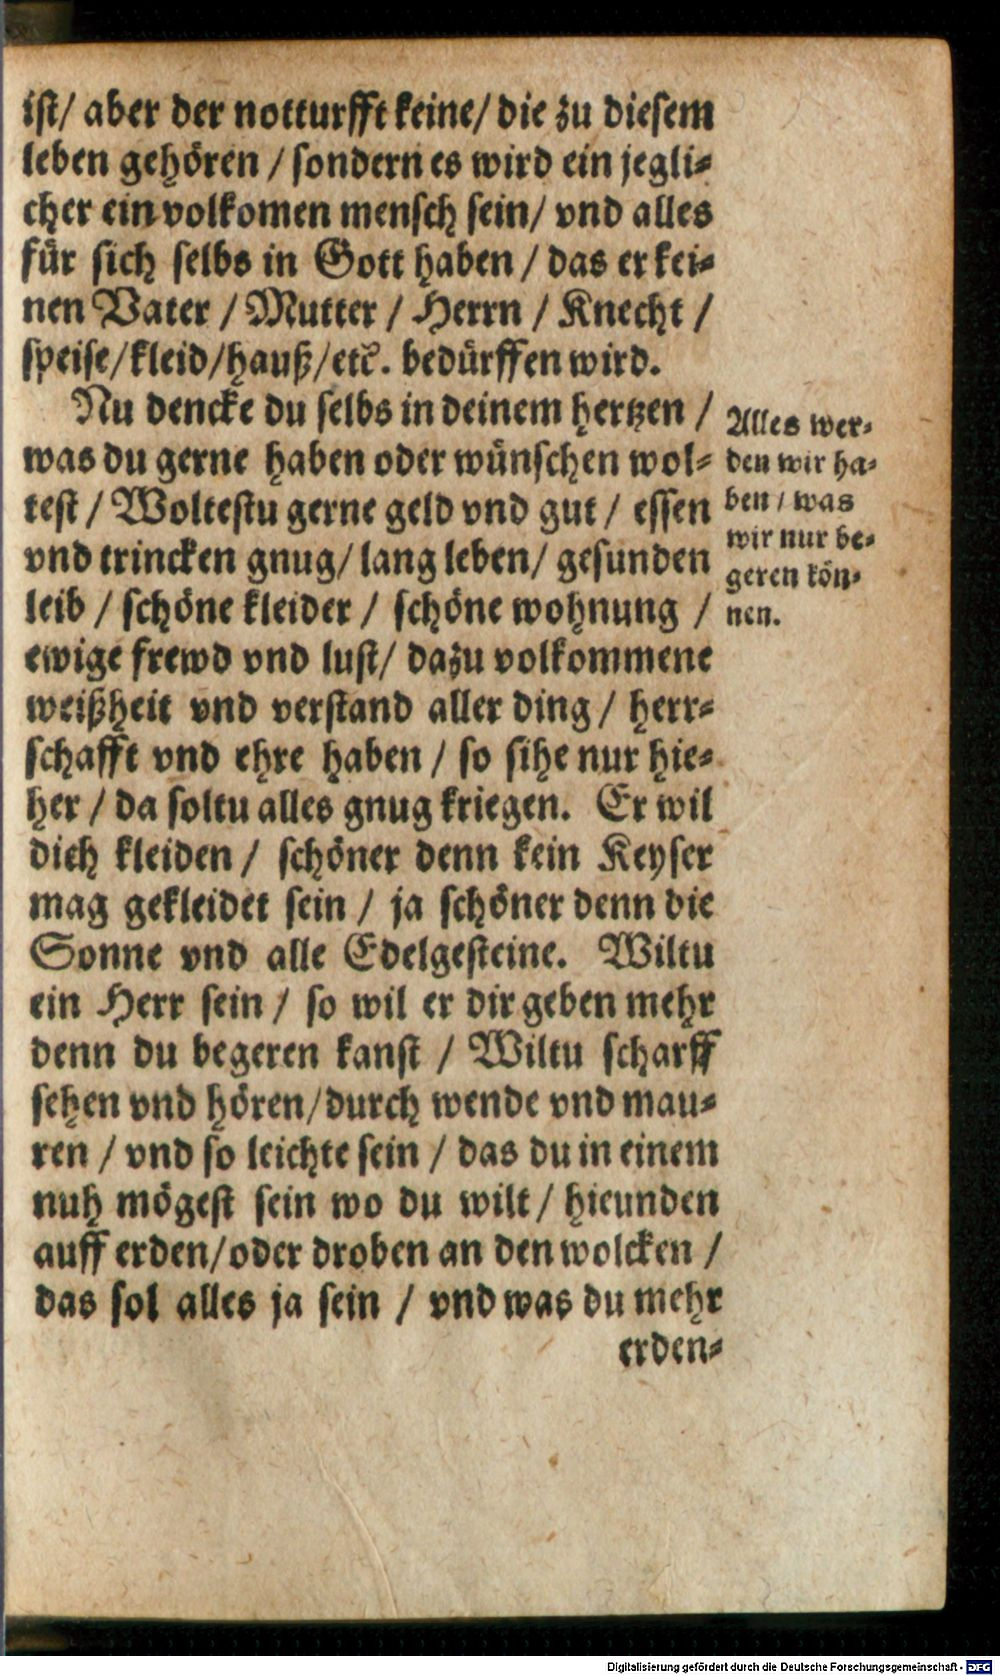 ist/ aber der notturfft keine/ die zu diesem
leben gehören / sondern es wird ein jegli-
cher ein volkomen mensch sein/ vnd alles
für sich selbs in Gott haben / das er kei-
nen Vater / Mutter / Herrn / Knecht /
speise/kleid/hauß/etc. bedürffen wird.
Nu dencke du selbs in deinem hertzen /
was du gerne haben oder wünschen wol-
test / Woltestu gerne geld vnd gut / essen
vnd trincken gnug/ lang leben/ gesunden
leib / schöne kleider / schöne wohnung /
ewige frewd vnd lust/ dazu volkommene
weißheit vnd verstand aller ding / herr-
schafft vnd ehre haben / so sihe nur hie-
her / da soltu alles gnug kriegen. Er wil
dich kleiden / schöner denn kein Keyser
mag gekleidet sein / ja schöner denn die
Sonne vnd alle Edelgesteine. Wiltu
ein Herr sein / so wil er dir geben mehr
denn du begeren kanst / Wiltu scharff
sehen vnd hören/durch wende vnd mau-
ren / vnd so leichte sein / das du in einem
nuh mögest sein wo du wilt / hieunden
auff erden/oder droben an den wolcken /
das sol alles ja sein / vnd was du mehr
erden-
Alles wer-
den wir ha-
ben / was
wir nur be-
geren kön-
nen.
Digitalisierung gefördert durch die Deutsche Forschungsgemeinschaft - DFG